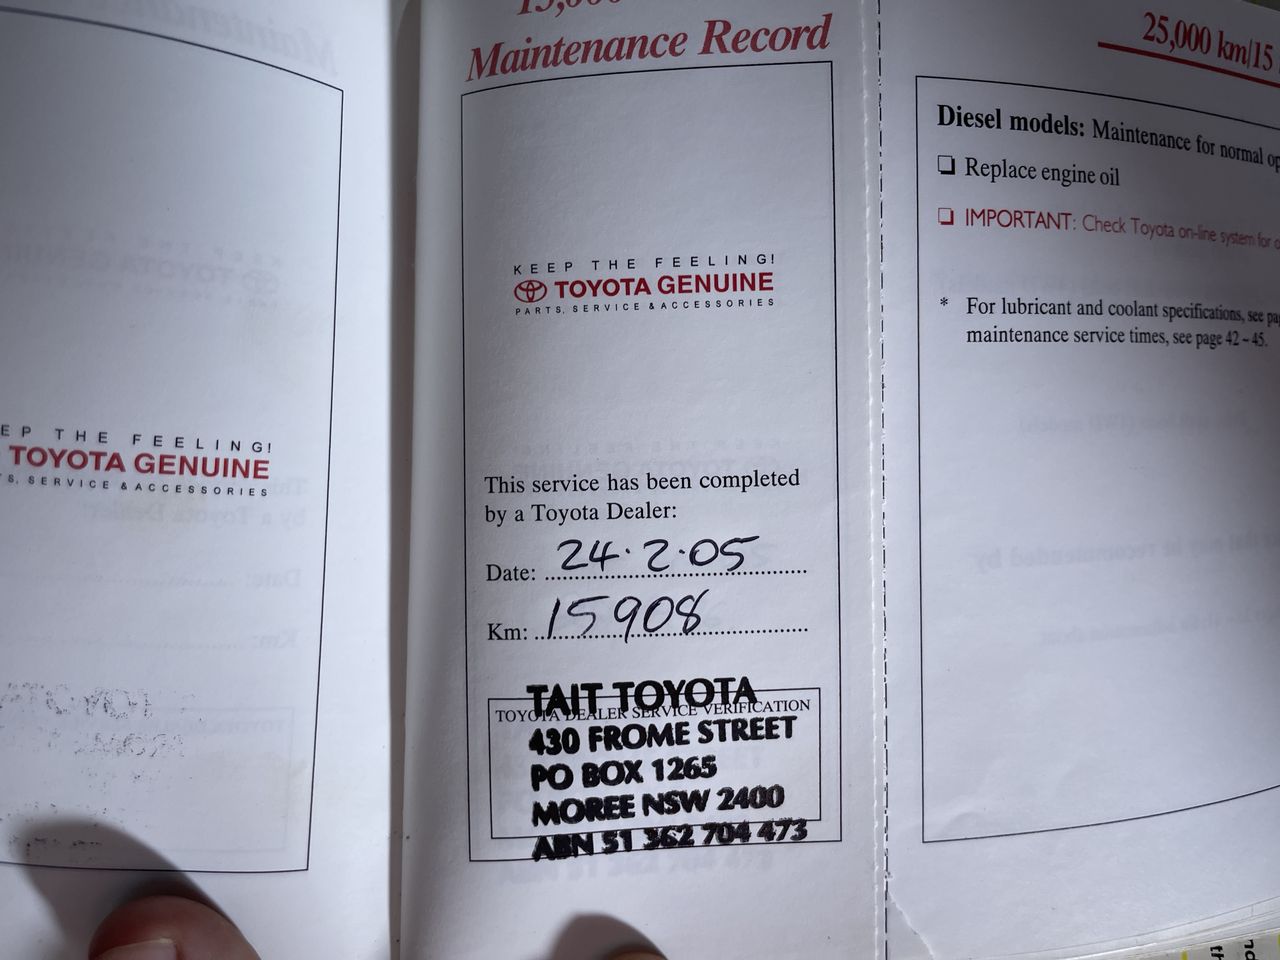 Maintenance Record
KEEP THE FEELING!
TOYOTA GENUINE
PARTS, SERVICE & ACCESSORIES
This service has been completed
by a Toyota Dealer:
Date: 24.2.05
Km: 15908
TOYOTA DEALER SERVICE VERIFICATION
TAIT TOYOTA
430 FROME STREET
PO BOX 1265
MOREE NSW 2400
ABN 51 362 704 473
THE FEELING!
TOYOTA GENUINE
SERVICE & ACCESSORIES
25,000 km/15
Diesel models: Maintenance for normal
❏ Replace engine oil
❏ IMPORTANT: Check Toyota on-line system for
* For lubricant and coolant specifications, see
maintenance service times, see page 42 – 45.